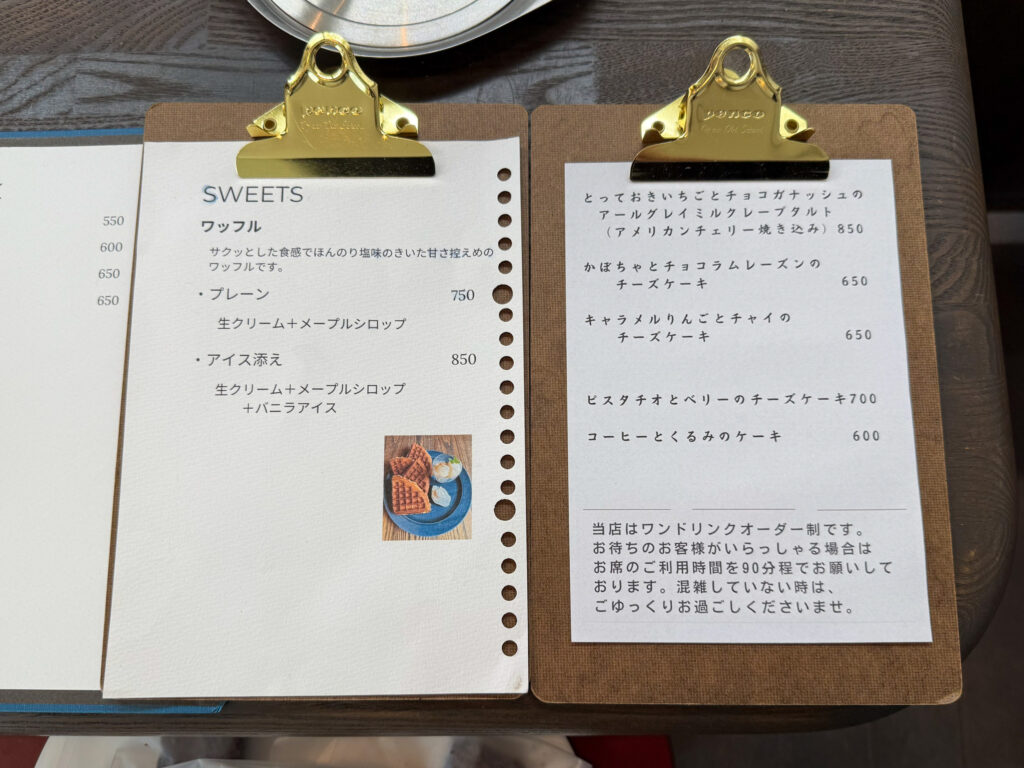 550
600
650
650
penco
SWEETS
ワッフル
サクッとした食感でほんのり塩味のきいた甘さ控えめの
ワッフルです。
・プレーン 750
生クリーム＋メープルシロップ
・アイス添え 850
生クリーム＋メープルシロップ
＋バニラアイス
penco
とっておきいちごとチョコガナッシュの
アールグレイミルクレープタルト
（アメリカンチェリー焼き込み）850
かぼちゃとチョコラムレーズンの
チーズケーキ 650
キャラメルりんごとチャイの
チーズケーキ 650
ピスタチオとベリーのチーズケーキ700
コーヒーとくるみのケーキ 600
当店はワンドリンクオーダー制です。
お待ちのお客様がいらっしゃる場合は
お席のご利用時間を90分程でお願いして
おります。混雑していない時は、
ごゆっくりお過ごしくださいませ。